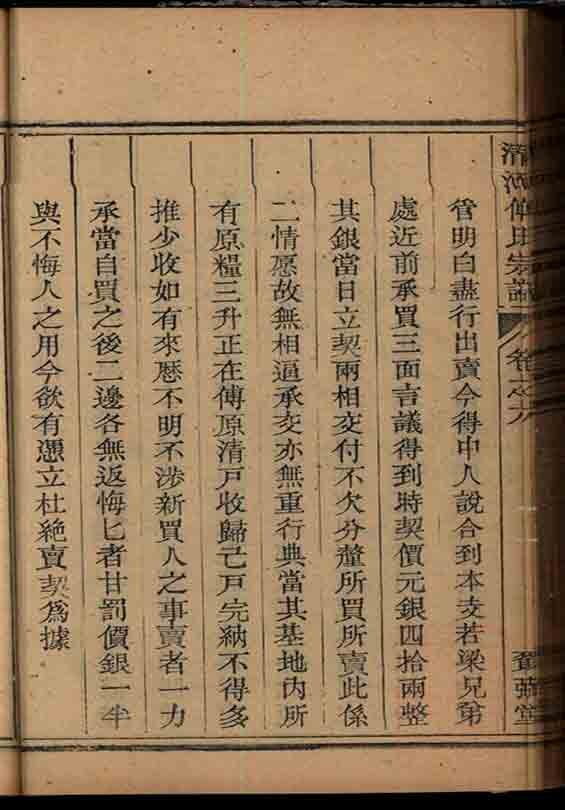 清河傅氏宗譜 卷之六
管明白盡行出賣今得中人說合到本支若梁兄弟
處近前承買三面言議得到時契價元銀四拾兩整
其銀當日立契兩相交付不欠分釐所買所賣此係
二情愿故無相逼承交亦無重行典當其基地內所
有原糧三升正在傅原清戶收歸己戶完納不得多
推少收如有來曆不明不涉新買人之事賣者一力
承當自買之後二邊各無返悔匕者甘罰價銀一半
與不悔人之用今欲有憑立杜絶賣契爲據
堂